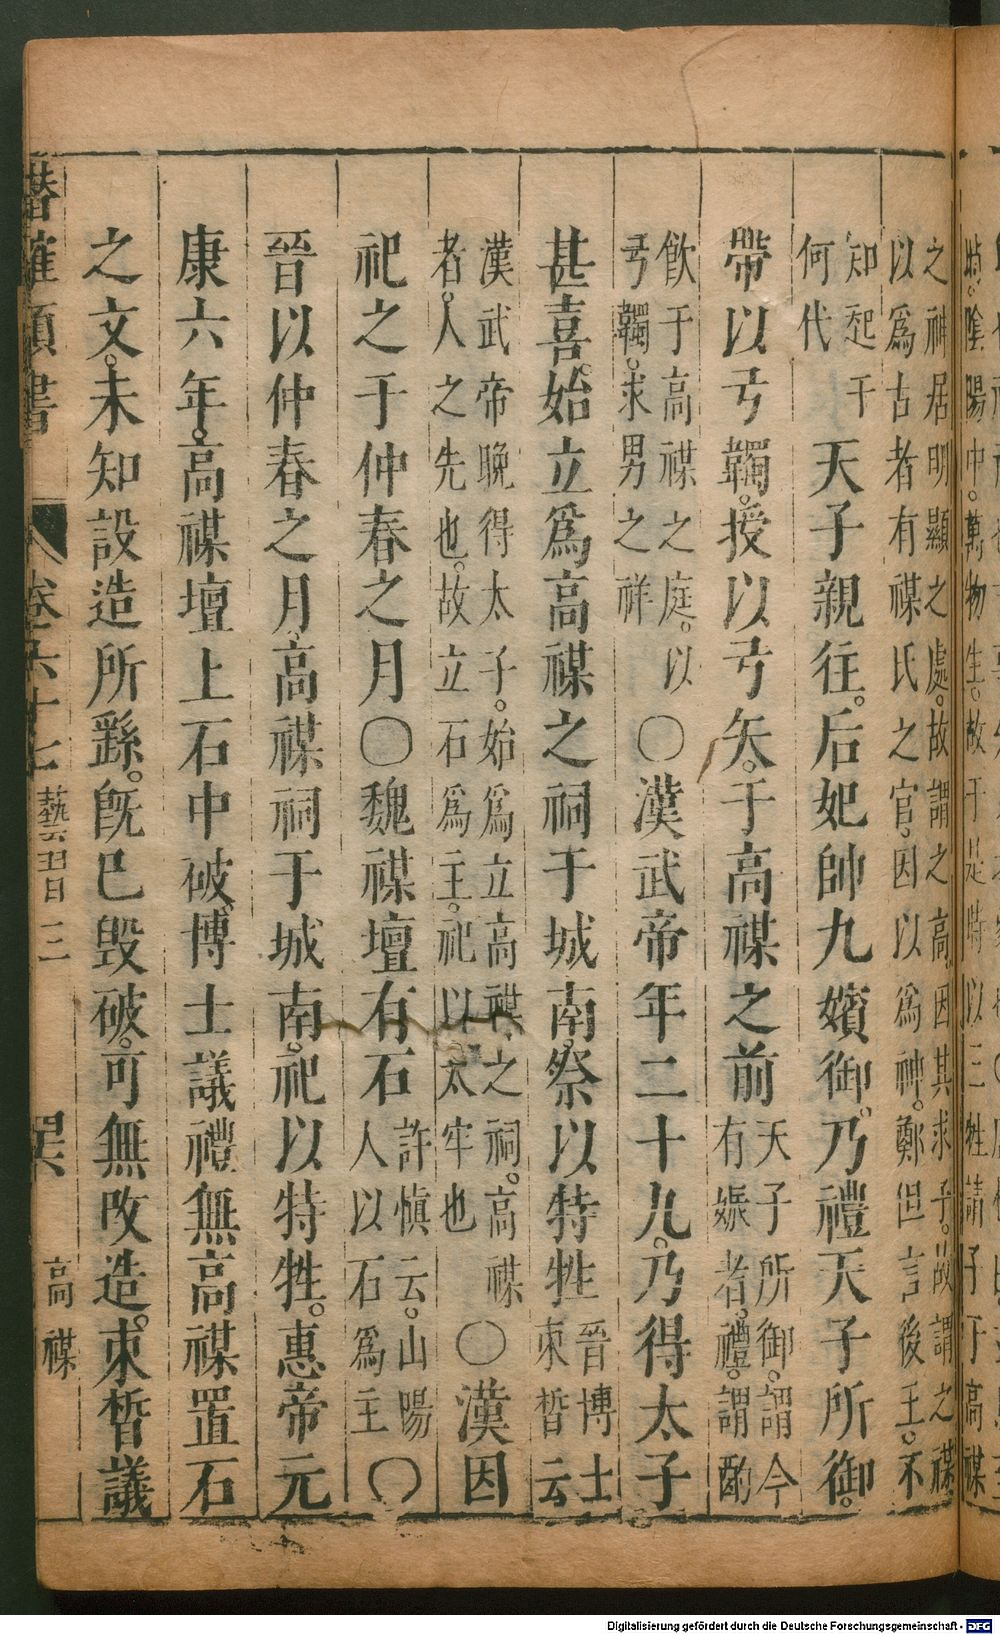 之神居明顯之處故謂之高因其求子故謂之禖
以爲古者有禖氏之官因以爲神鄭但言後王不
知起于
何代
天子親往。后妃帥九嬪御。乃禮天子所御。
帶以弓韣。授以弓矢。于高禖之前
天子所御。謂今
有娠者。禮。謂酌
飲于高禖之庭。以
弓韣。求男之祥
〇漢武帝年二十九。乃得太子
甚喜。始立爲高禖之祠于城南。祭以特牲
晉博士
束晳云
漢武帝晚得太子。始爲立高禖之祠。高禖
者。人之先也。故立石爲主。祀以太牢也
〇漢因
祀之于仲春之月〇魏禖壇有石
許慎云。山陽
人以石爲主
〇
晉以仲春之月。高禖祠于城南。祀以特牲。惠帝元
康六年。高禖壇上石中破。博士議禮無高禖置石
之文。未知設造所繇。旣已毁破。可無改造。束晳議
潛確類書 卷六十七 藝習三 四六 高禖
Digitalisierung gefördert durch die Deutsche Forschungsgemeinschaft - DFG